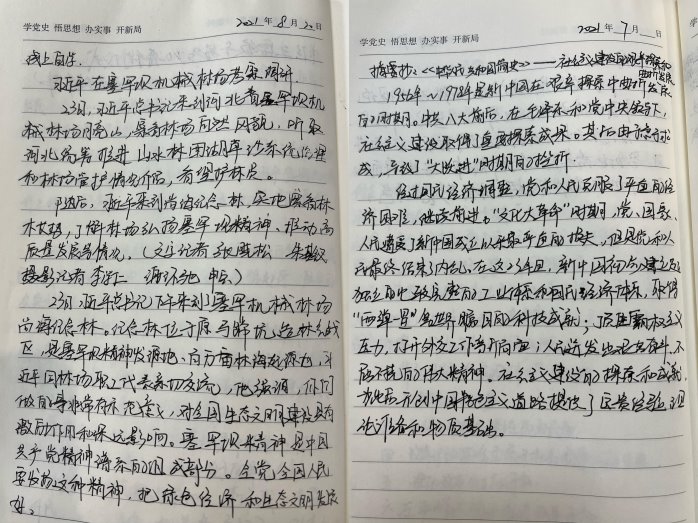 学党史 悟思想 办实事 开新局
2021年8月25日
线上自学.
习近平在塞罕坝机械林场考察调研
23日,习近平总书记来到河北省塞罕坝机
械林场月亮山,察看林场自然风貌,听取
河北统筹推进山水林田湖草沙系统治理
和林场管护情况介绍,看望护林员。
随后,习近平来到尚海纪念林,实地察看林
木长势,了解林场弘扬塞罕坝精神、推动高
质量发展等情况。(文字记者
摄影记者 李
23日习近平总书记下午来到了塞罕坝机械林场
尚海纪念林。纪念林位于原马蹄坑造林会战
区,是塞罕坝精神发源地、百万亩林海起源地,习
近平同林场职工代表亲切交流,他强调,你们
做的事非常有示范意义,对全国生态文明建设具有
激励作用和深远影响。塞罕坝精神是中国
共产党精神谱系的组成部分。全党全国人民
要发扬这种精神,把绿色经济和生态文明发展
好。
学党史 悟思想 办实事 开新局
2021年7月 日
摘要抄:《中华人民共和国简史》——社会主义建设的艰辛探索和
曲折发展
1956年~1978年是新中国在艰辛探索中曲折发展
的时期。中共八大前后,在毛泽东和党中央领导下,
社会主义建设取得了重要探索成果。其后由于急于求
成,导致了“大跃进”时期的挫折.
经过国民经济调整,党和人民克服了严重的经
济困难,继续前进。“文化大革命”时期,党、国家、
人民遭受了新中国成立以来最严重的损失,但是党和人
民最终结束了内乱。在这22年里,新中国初步建立起
独立的比较完整的工业体系和国民经济体系,取得
“两弹一星”等世界瞩目的科技成就;顶住霸权主义
压力,打开外交工作新局面;人民迸发出艰苦奋斗、不
屈不挠的伟大精神。社会主义建设的探索和成就,
为此后开创中国特色社会主义道路提供了宝贵经验、理
论准备和物质基础。